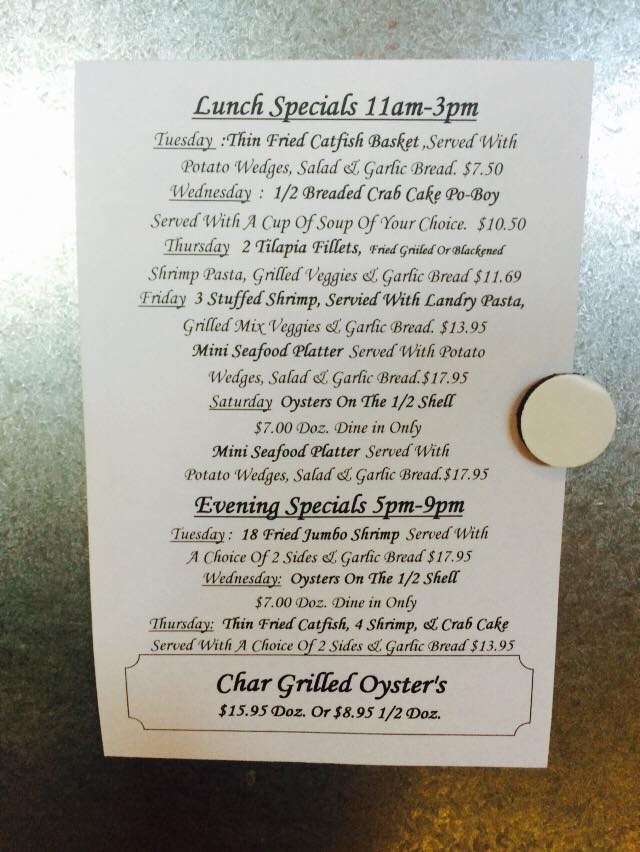 Lunch Specials 11am-3pm
Tuesday :Thin Fried Catfish Basket ,Served With
Potato Wedges, Salad & Garlic Bread. $7.50
Wednesday : 1/2 Breaded Crab Cake Po-Boy
Served With A Cup Of Soup Of Your Choice. $10.50
Thursday 2 Tilapia Fillets, Fried Grilled Or Blackened
Shrimp Pasta, Grilled Veggies & Garlic Bread $11.69
Friday 3 Stuffed Shrimp, Servied With Landry Pasta,
Grilled Mix Veggies & Garlic Bread. $13.95
Mini Seafood Platter Served With Potato
Wedges, Salad & Garlic Bread.$17.95
Saturday Oysters On The 1/2 Shell
$7.00 Doz. Dine in Only
Mini Seafood Platter Served With
Potato Wedges, Salad & Garlic Bread.$17.95
Evening Specials 5pm-9pm
Tuesday : 18 Fried Jumbo Shrimp Served With
A Choice Of 2 Sides & Garlic Bread $17.95
Wednesday: Oysters On The 1/2 Shell
$7.00 Doz. Dine in Only
Thursday: Thin Fried Catfish, 4 Shrimp, & Crab Cake
Served With A Choice Of 2 Sides & Garlic Bread $13.95
Char Grilled Oyster's
$15.95 Doz. Or $8.95 1/2 Doz.